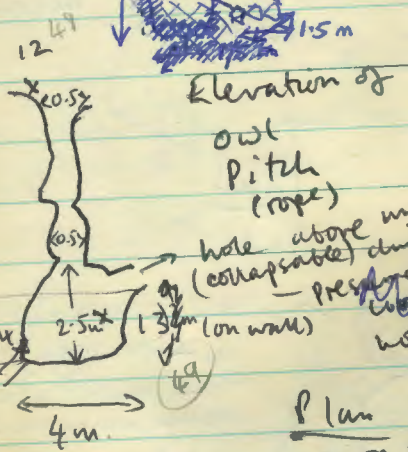 49
12
1.5 m
0.5
Elevation of
owl
Pitch
(rope)
0.5
hole above
(collapsable)
2.5m
13 m (on wall)
49
4 m.
Plan